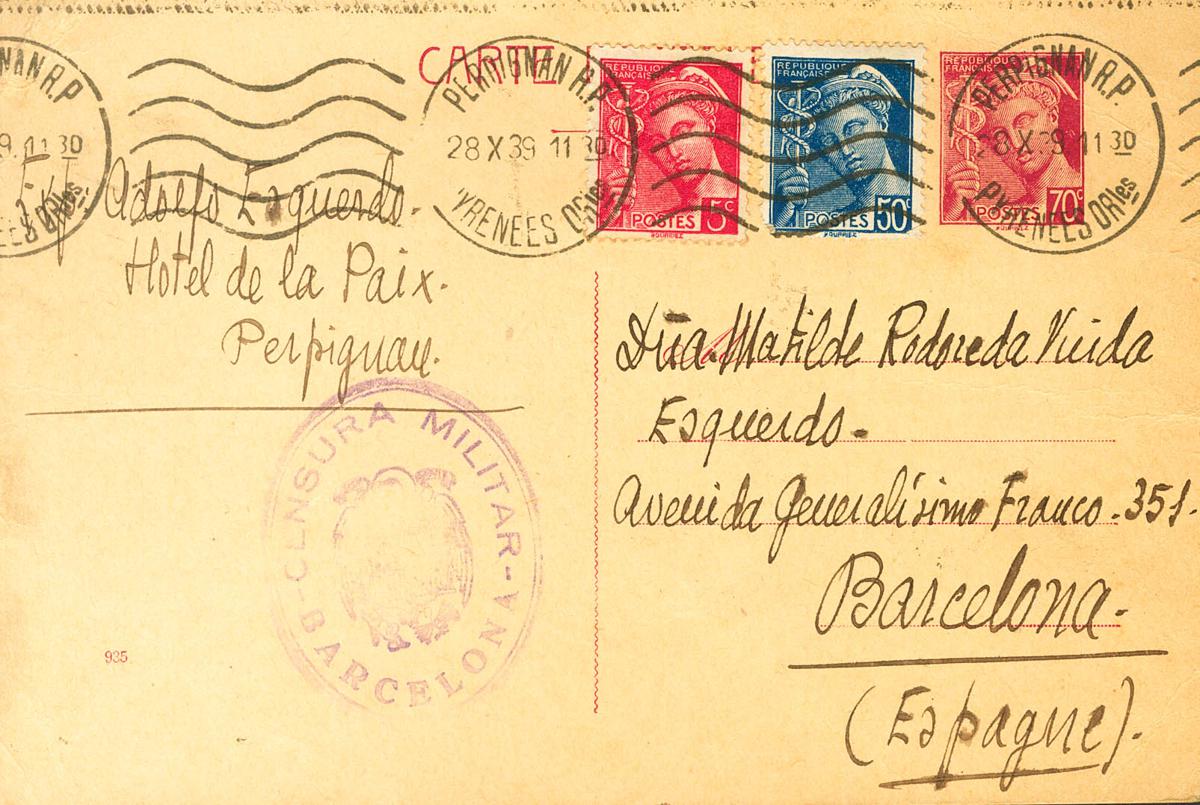 CARTE
PERPIGNAN R.P.
28 X 39 11 30
PYRENEES ORles
RÉPUBLIQUE
FRANÇAISE
POSTES 5c
RÉPUBLIQUE
FRANÇAISE
POSTES 50c
RÉPUBLIQUE
FRANÇAISE
POSTES 70c
PERPIGNAN R.P.
28 X 39 11 30
PYRENEES ORles
NAN R.P
9 11 30
EES ORles
Adolfo Esquerdo.
Hotel de la Paix.
Perpignan.
Dña. Matilde Rodoreda Viuda
Esquerdo-
Avenida Generalísimo Franco-351.
Barcelona.-
(Espagne).
-CENSURA MILITAR-
BARCELONA
935